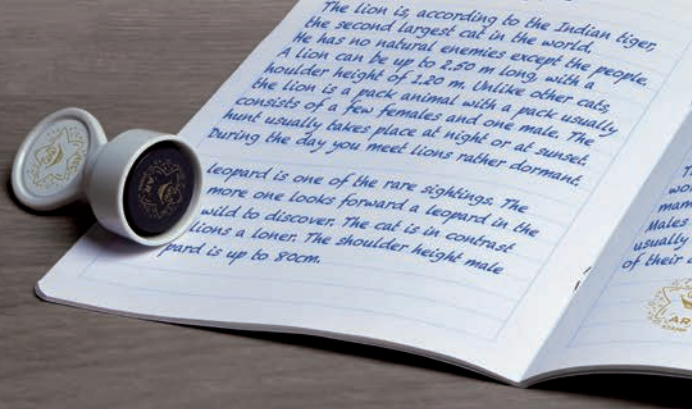 The lion is, according to the Indian tiger,
the second largest cat in the world.
He has no natural enemies except the people.
A lion can be up to 2.50 m long, with a
houlder height of 1.20 m. Unlike other cats,
the lion is a pack animal with a pack usually
consists of a few females and one male. The
hunt usually takes place at night or at sunset.
During the day you meet lions rather dormant.
leopard is one of the rare sightings. The
more one looks forward a leopard in the
wild to discover. The cat is in contrast
lions a loner. The shoulder height male
pard is up to 80cm.
Males
usually
of their